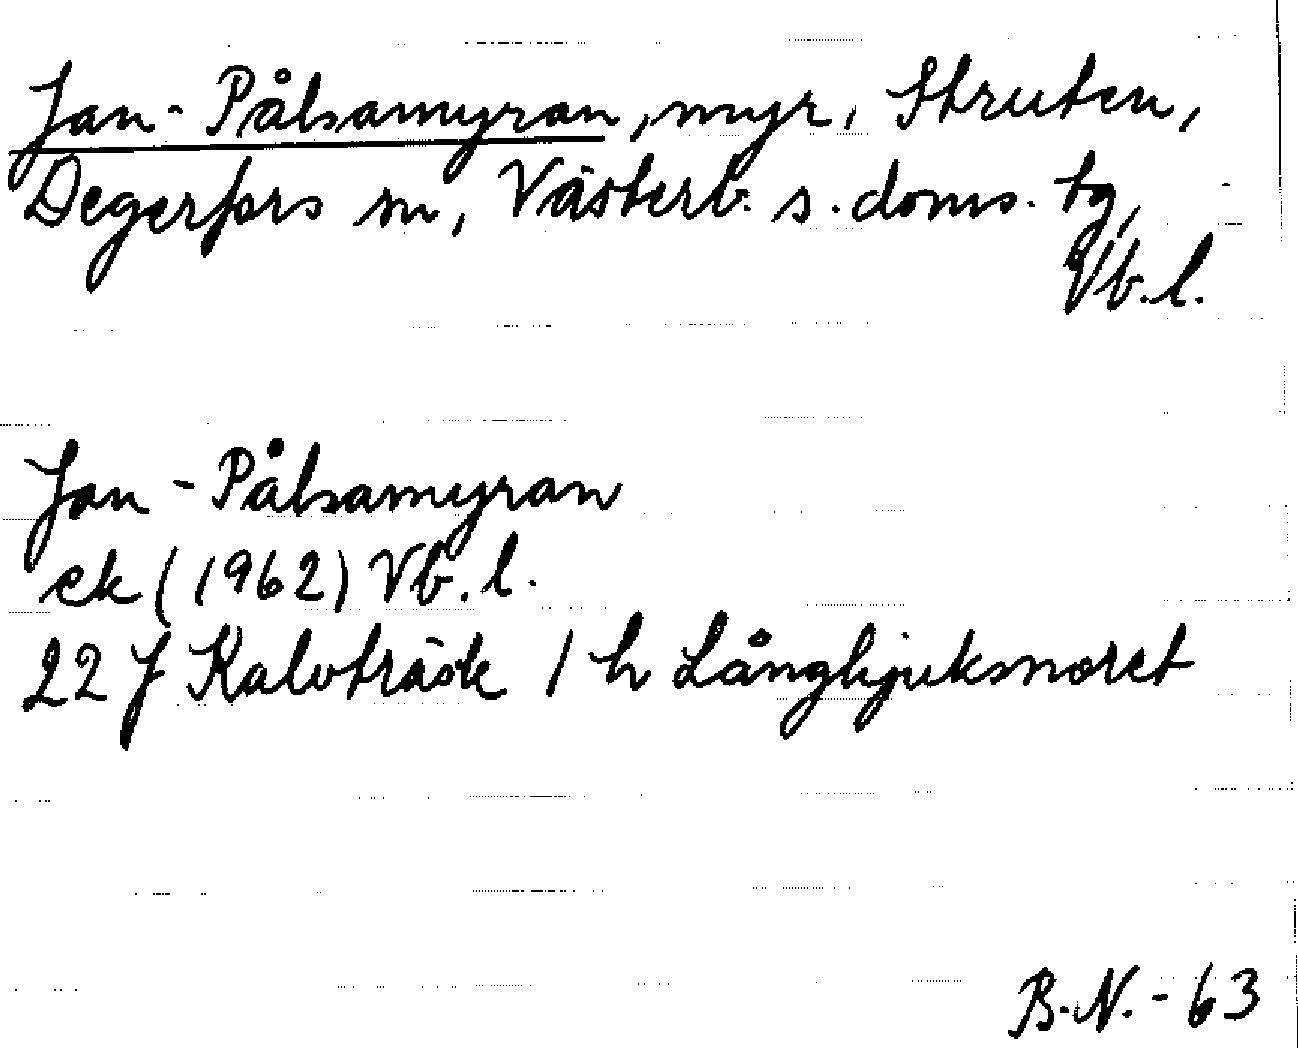 Jan-Pålsamyran, myr, Struten,
Degerfors sn, Västerb. s. doms. tg,
Vb. l.
Jan-Pålsamyran
ek (1962) Vb. l.
22 J Kalvträsk 1 h Långhjuksmoret
B.N.-63